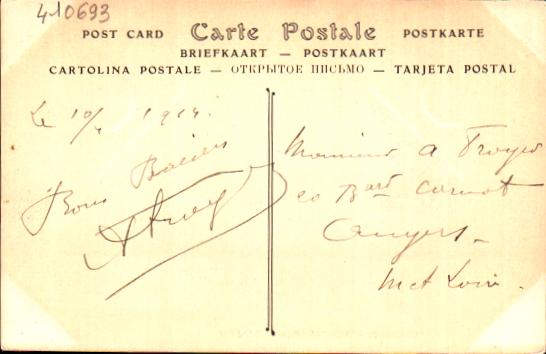 410693
Carte Postale
POST CARD
POSTKARTE
BRIEFKAART — POSTKAART
CARTOLINA POSTALE — ОТКРЫТОЕ ПИСЬМО — TARJETA POSTAL
Le 10/4 1914.
Bons Baisers
Monsieur A Troyer
20 Bard Carnot
Angers
M et Loire.